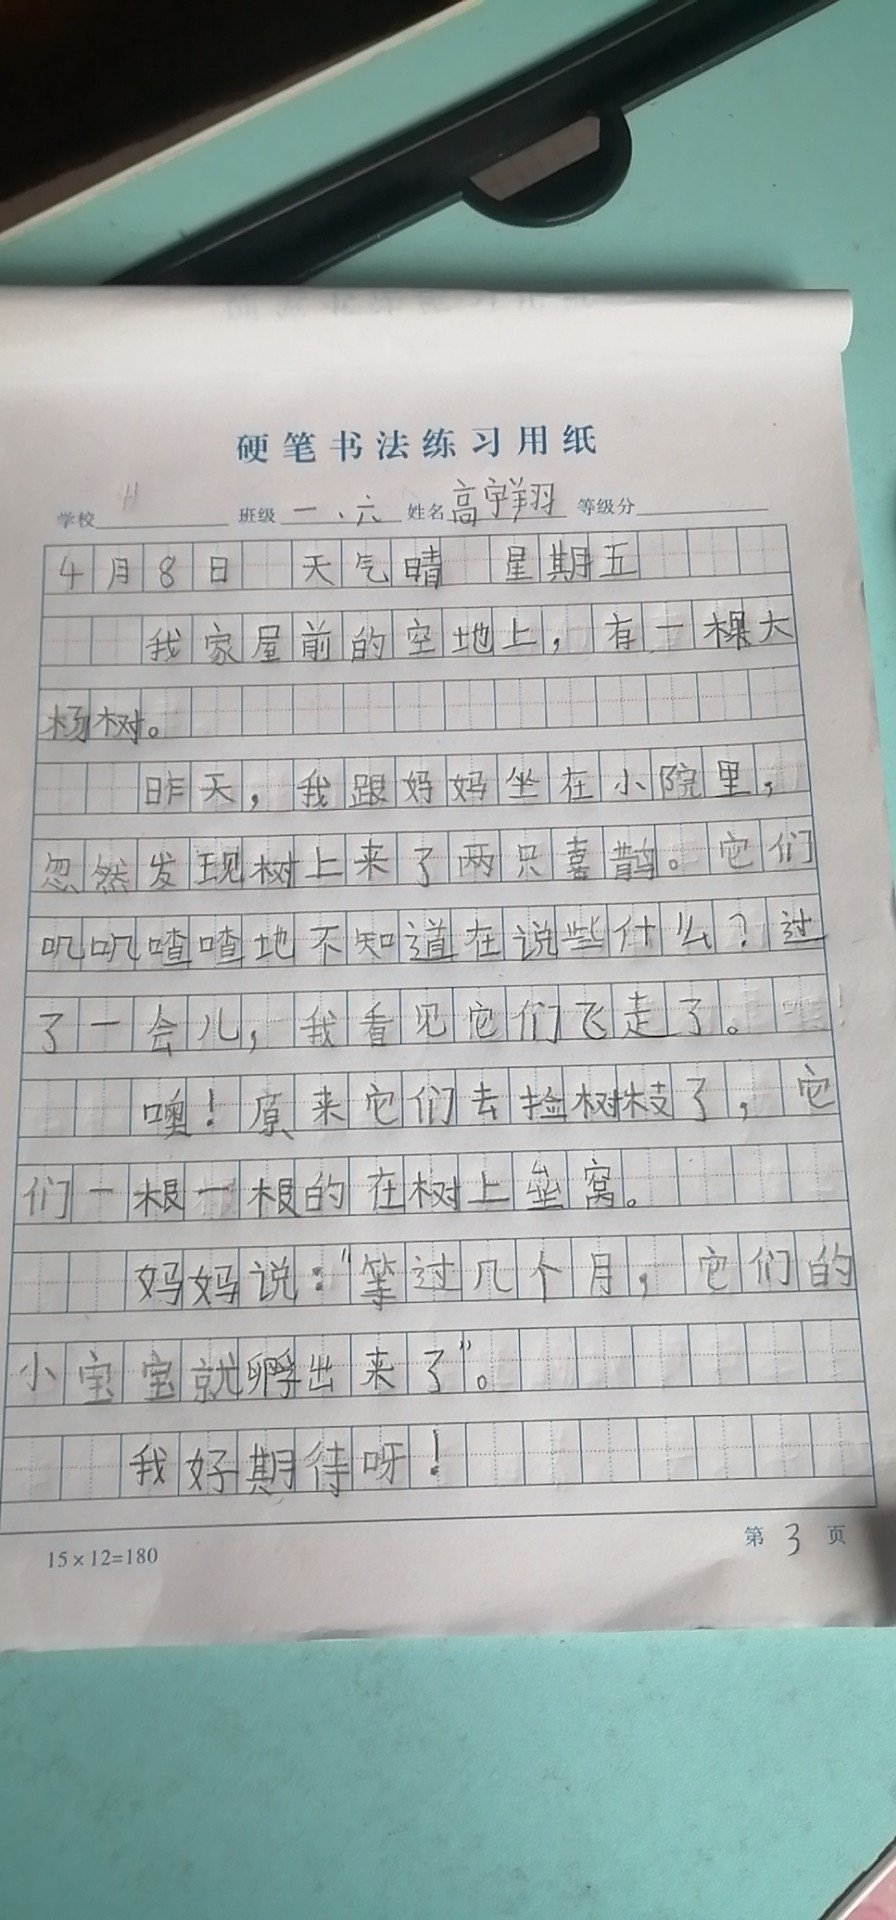 硬笔书法练习用纸
学校 班级 一、六 姓名 高宇翔 等级分
4月8日 天气晴 星期五
我家屋前的空地上，有一棵大
杨树。
昨天，我跟妈妈坐在小院里，
忽然发现树上来了两只喜鹊。它们
叽叽喳喳地不知道在说些什么？过
了一会儿，我看见它们飞走了。
噢！原来它们去捡树枝了，它
们一根一根的在树上垒窝。
妈妈说：“等过几个月，它们的
小宝宝就孵出来了”。
我好期待呀！
15×12=180
第 3 页